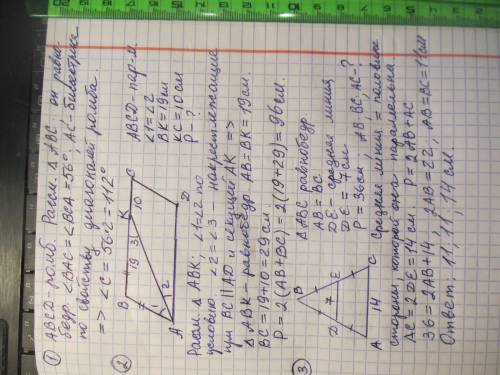 ① ABCD-ромб. Рассм. △ ABC он равно-
бедр. ∠BAC = ∠BCA = 56°, AC-биссектриса
по свойству диагоналей ромба
=> ∠C = 56·2 = 112°
②
B K C
19 3 10
1
2
A D
ABCD-пар-м.
∠1=∠2
BK=19см
KC=10см
P-?
Рассм. △ ABK; ∠1=∠2 по
условию, ∠2=∠3 - накрестлежащие
при BC||AD и секущей AK =>
△ABK-равнобедр AB=BK=19см.
BC=19+10=29см
P=2(AB+BC)=2(19+29)=96см.
③
B
D 7 E
A 14 C
△ABC равнобедр
AB=BC
DE-средняя линия
DE=7см
P=36см AB, BC, AC-?
Средняя линия = половине
стороны которой она параллельна
AC=2DE=14см. P=2AB+AC
36=2AB+14 2AB=22, AB=BC=11см
Ответ: 11, 11, 14 см.